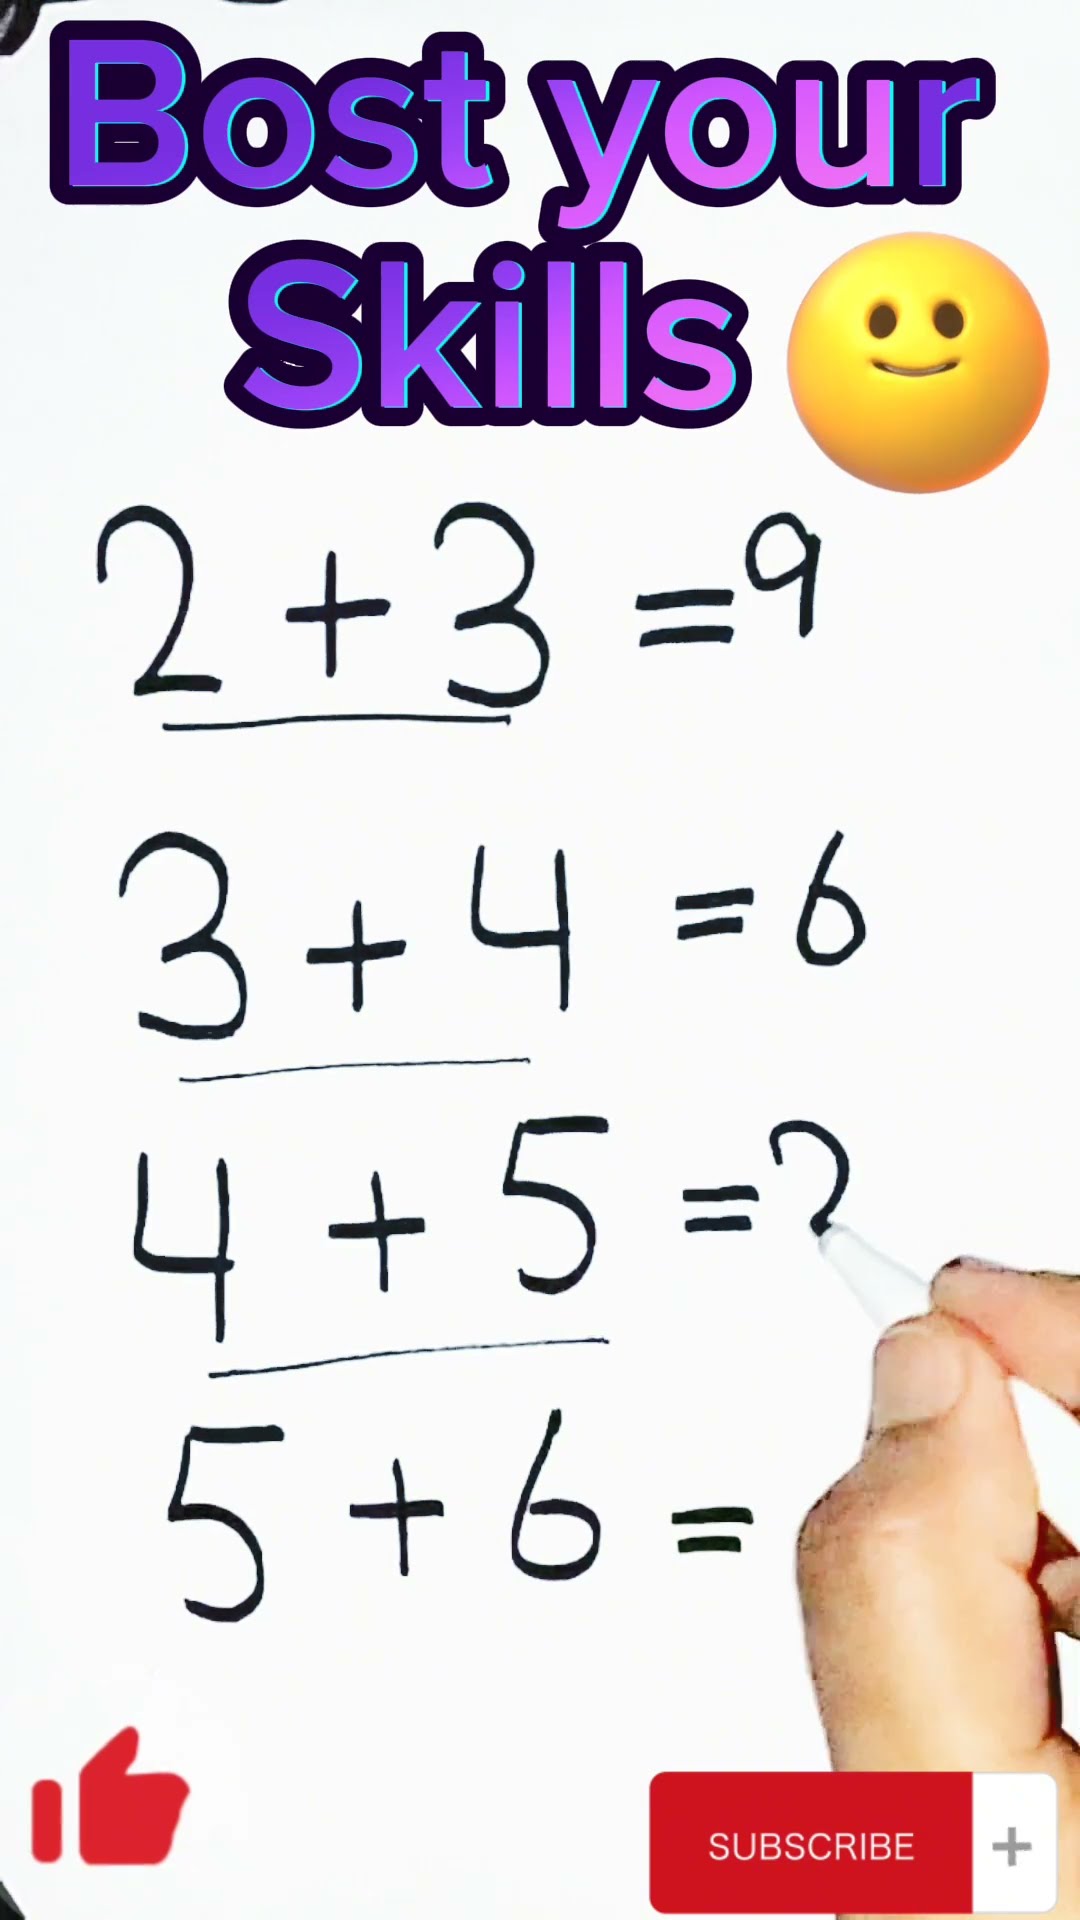 Bost your
Skills
2 + 3 = 9
3 + 4 = 6
4 + 5 = ?
5 + 6 =
SUBSCRIBE +